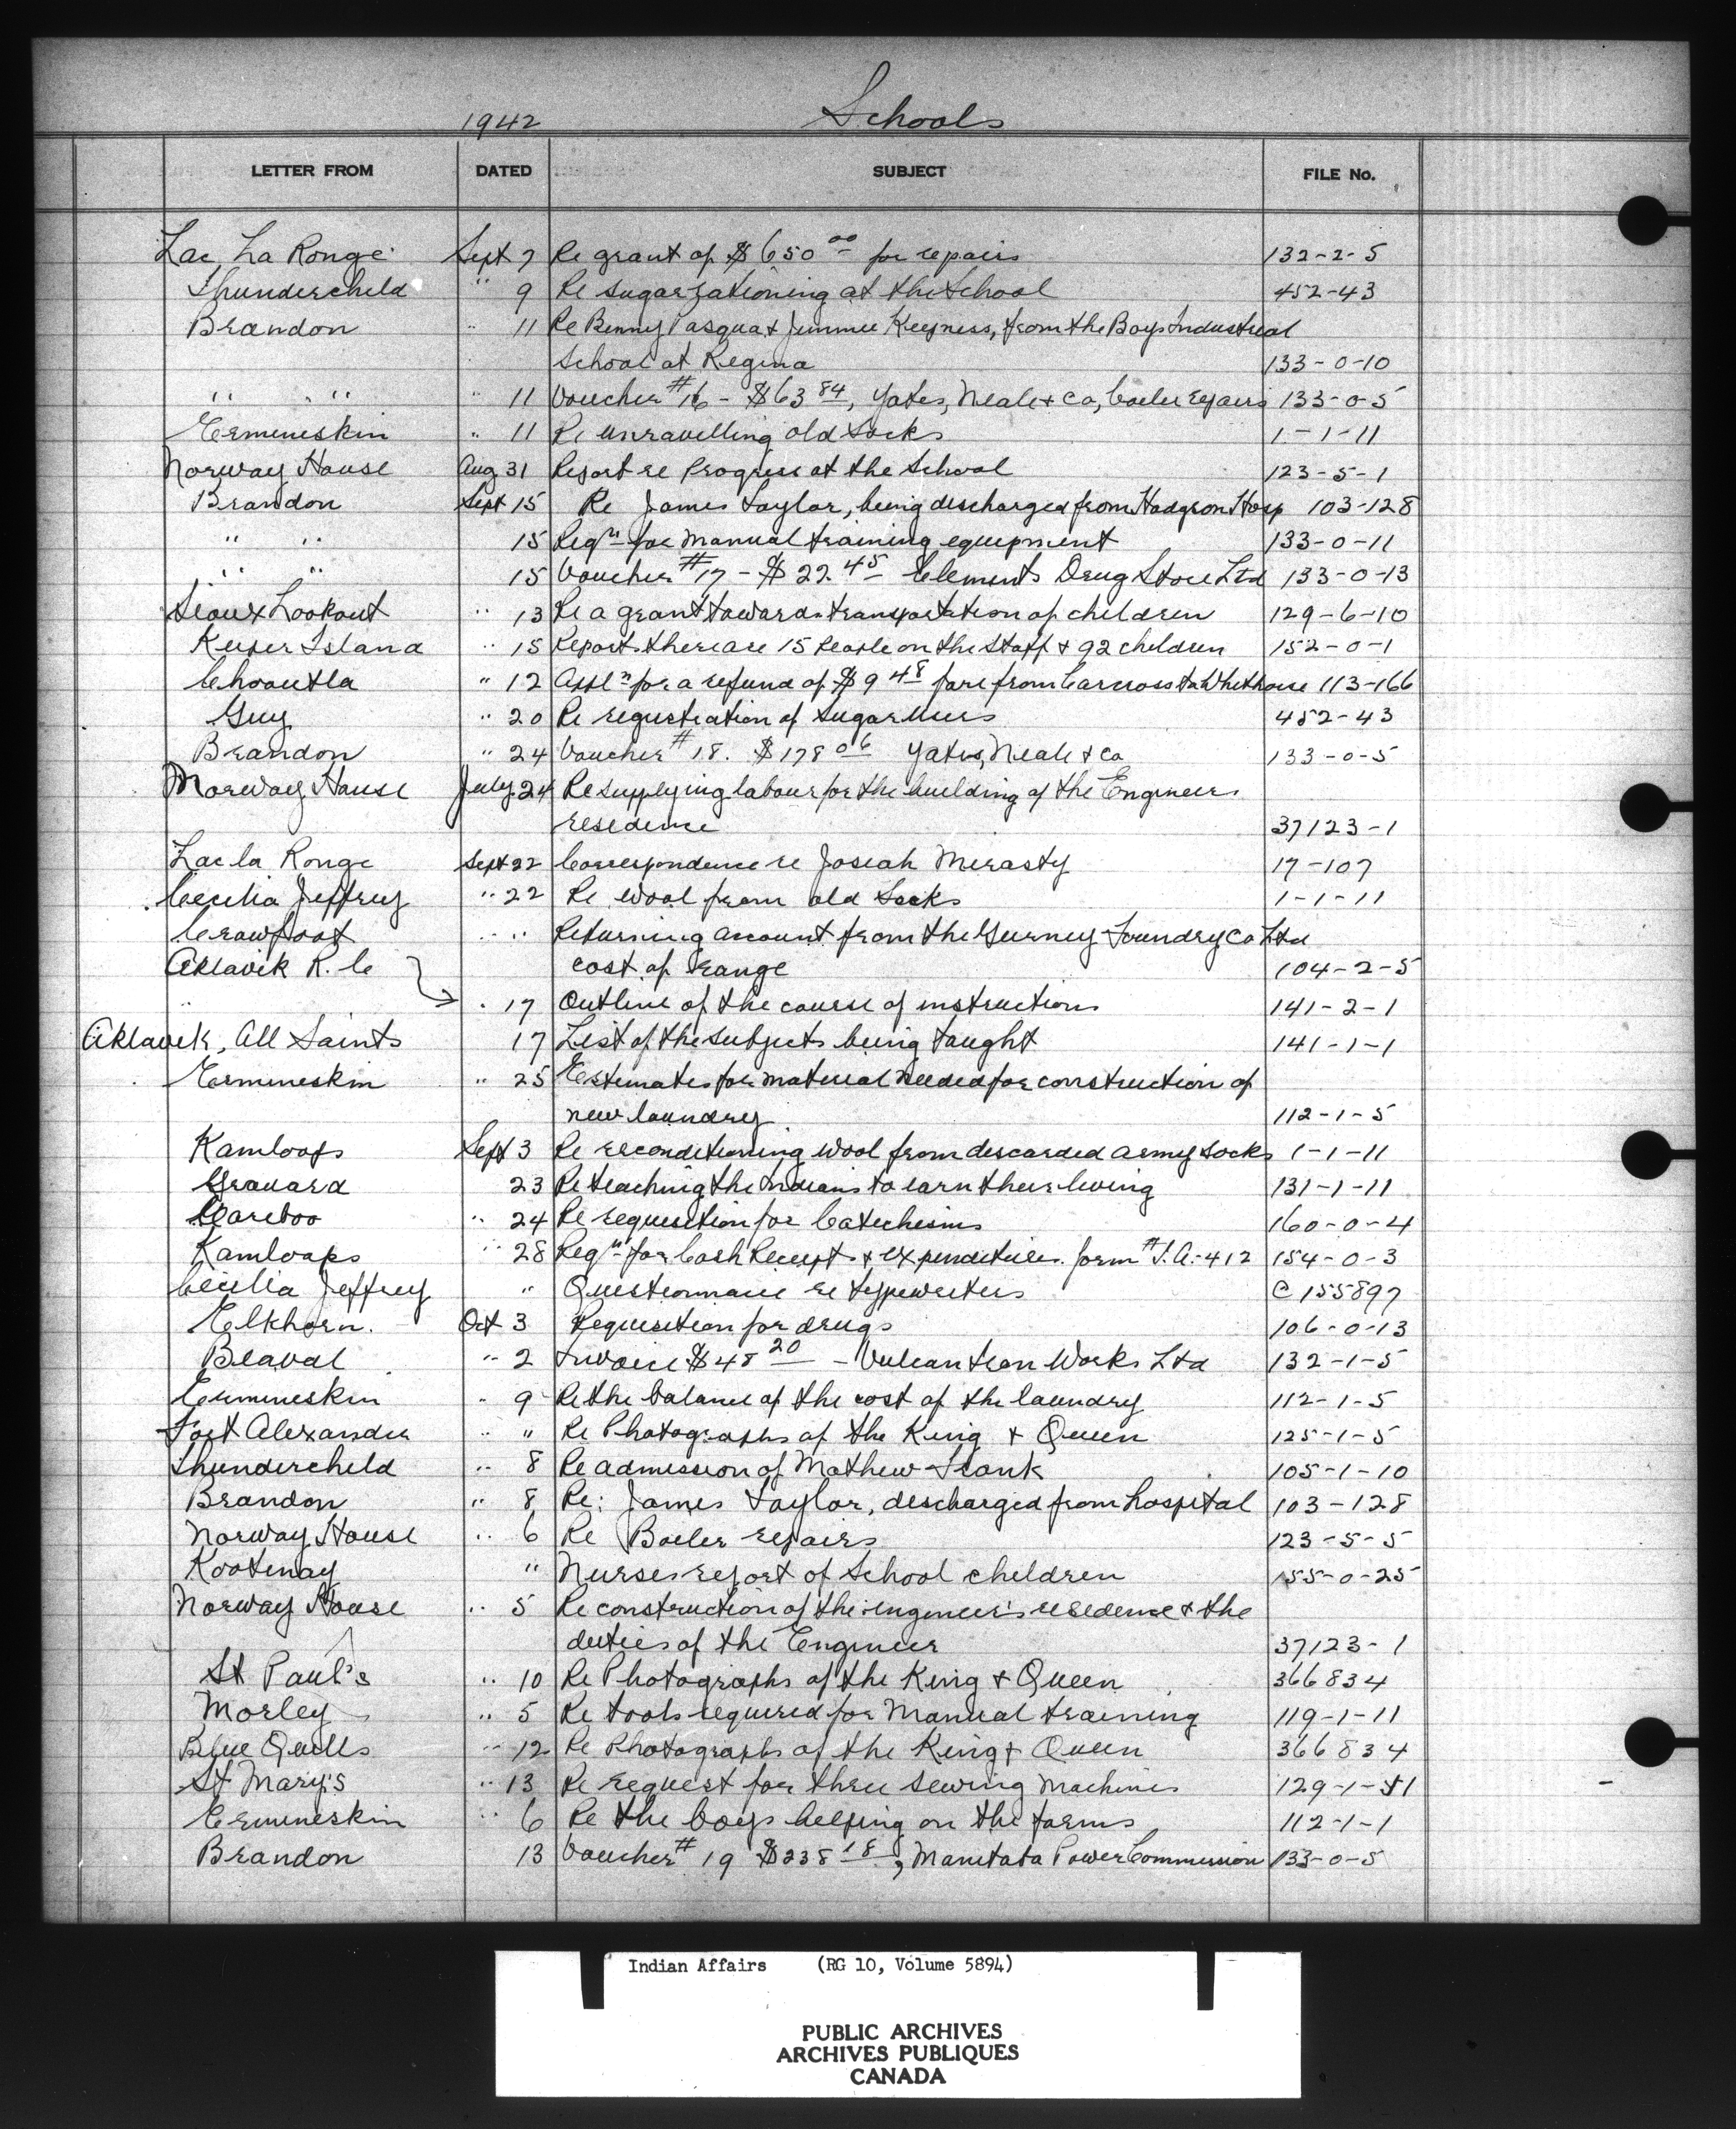 1942 Schools
LETTER FROM DATED SUBJECT FILE No.
Lac La Ronge Sept 7 Re grant of $650 00 for repairs 132-2-5
Thunderchild " 9 Re sugar rationing at the School 452-43
Brandon " 11 Re Benny Pasqua & Jimmie Keepness, from the Boys Industrial
School at Regina 133-0-10
" " " 11 Voucher #16 - $63 84, Yates, Neale & Co, boiler repairs 133-0-5
Ermineskin " 11 Re unravelling old socks 1-1-11
Norway House Aug 31 Report re Progress at the School 123-5-1
Brandon Sept 15 Re James Taylor, being discharged from Hodgson Hosp 103-128
" " 15 Reqn for Manual training equipment 133-0-11
" " 15 Voucher #17 - $22.45 Clements Drug Store Ltd 133-0-13
Sioux Lookout " 13 Re a grant towards transportation of children 129-6-10
Kuper Island " 15 Reports there are 15 people on the staff & 92 children 152-0-1
Chooutla " 12 Appln for a refund of $9 48 fare from Carcross to Whithorse 113-166
Guy " 20 Re registration of Sugar Users 452-43
Brandon " 24 Voucher #18. $178 06 Yates, Neale & Co 133-0-5
Norway House July 24 Re supplying labour for the building of the Engineers
residence 37123-1
Lac la Ronge Sept 22 Correspondence re Josiah Mirasty 17-107
Cecilia Jeffrey " 22 Re wool from old Socks 1-1-11
Crowfoot " " Returning account from the Gurney Foundry Co Ltd
Aklavik R.C cost of range 104-2-5
" " 17 Outline of the course of instructions 141-2-1
Aklavik, All Saints 17 List of the subjects being taught 141-1-1
Ermineskin " 25 Estimates for material needed for construction of
new laundry 112-1-5
Kamloops Sept 3 Re reconditioning wool from discarded army socks 1-1-11
Grouard 23 Re teaching the Indians to earn their living 131-1-11
Cariboo " 24 Re requisition for Catechisms 160-0-4
Kamloops " 28 Reqn for Cash Receipts & expenditures. form #I.A.-412 154-0-3
Cecilia Jeffrey " Questionnaire re typewriters C 155897
Elkhorn. Oct 3 Requisition for drugs 106-0-13
Beaval " 2 Invoice $48 20 - Vulcan Iron Works Ltd 132-1-5
Ermineskin " 9 Re the balance of the cost of the laundry 112-1-5
Fort Alexander " " Re Photographs of the King & Queen 125-1-5
Thunderchild " 8 Re admission of Mathew 105-1-10
Brandon " 8 Re: James Taylor, discharged from hospital 103-128
Norway House " 6 Re Boiler repairs 123-5-5
Kootenay " Nurses report of School children 155-0-25
Norway House " 5 Re construction of the engineer's residence & the
duties of the Engineer 37123-1
St Paul's " 10 Re Photographs of the King & Queen 366834
Morley " 5 Re tools required for Manual training 119-1-11
Blue Quills " 12 Re Photographs of the King & Queen 366834
St Mary's " 13 Re request for three sewing machines 129-1-11
Ermineskin " 6 Re the boys helping on the farms 112-1-1
Brandon 13 Voucher #19 $238 18, Manitoba Power Commission 133-0-5
Indian Affairs (RG 10, Volume 5894)
PUBLIC ARCHIVES
ARCHIVES PUBLIQUES
CANADA